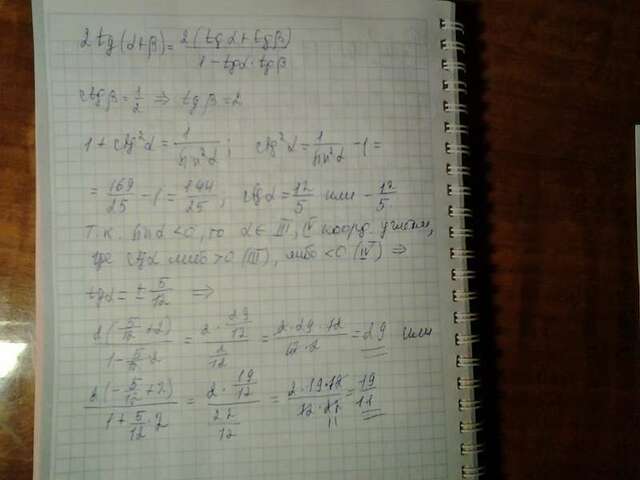 2 tg(α+β) = 2(tgα+tgβ) / 1-tgα·tgβ
ctgβ = 1/2 ⇒ tgβ = 2
1 + ctg²α = 1/sin²α; ctg²α = 1/sin²α - 1 =
= 169/25 - 1 = 144/25; ctgα = 12/5 или - 12/5
Т.к. sinα < 0, то α ∈ III, IV коорд. углам,
где ctgα либо > 0 (III), либо < 0 (IV) ⇒
tgα = ± 5/12 ⇒
2(5/12 + 2) / 1 - 5/12·2 = 2·29/12 / 2/12 = 2·29·12 / 12·2 = 29 или
2(-5/12 + 2) / 1 + 5/12·2 = 2·19/12 / 22/12 = 2·19·12 / 12·22 = 19/11
11